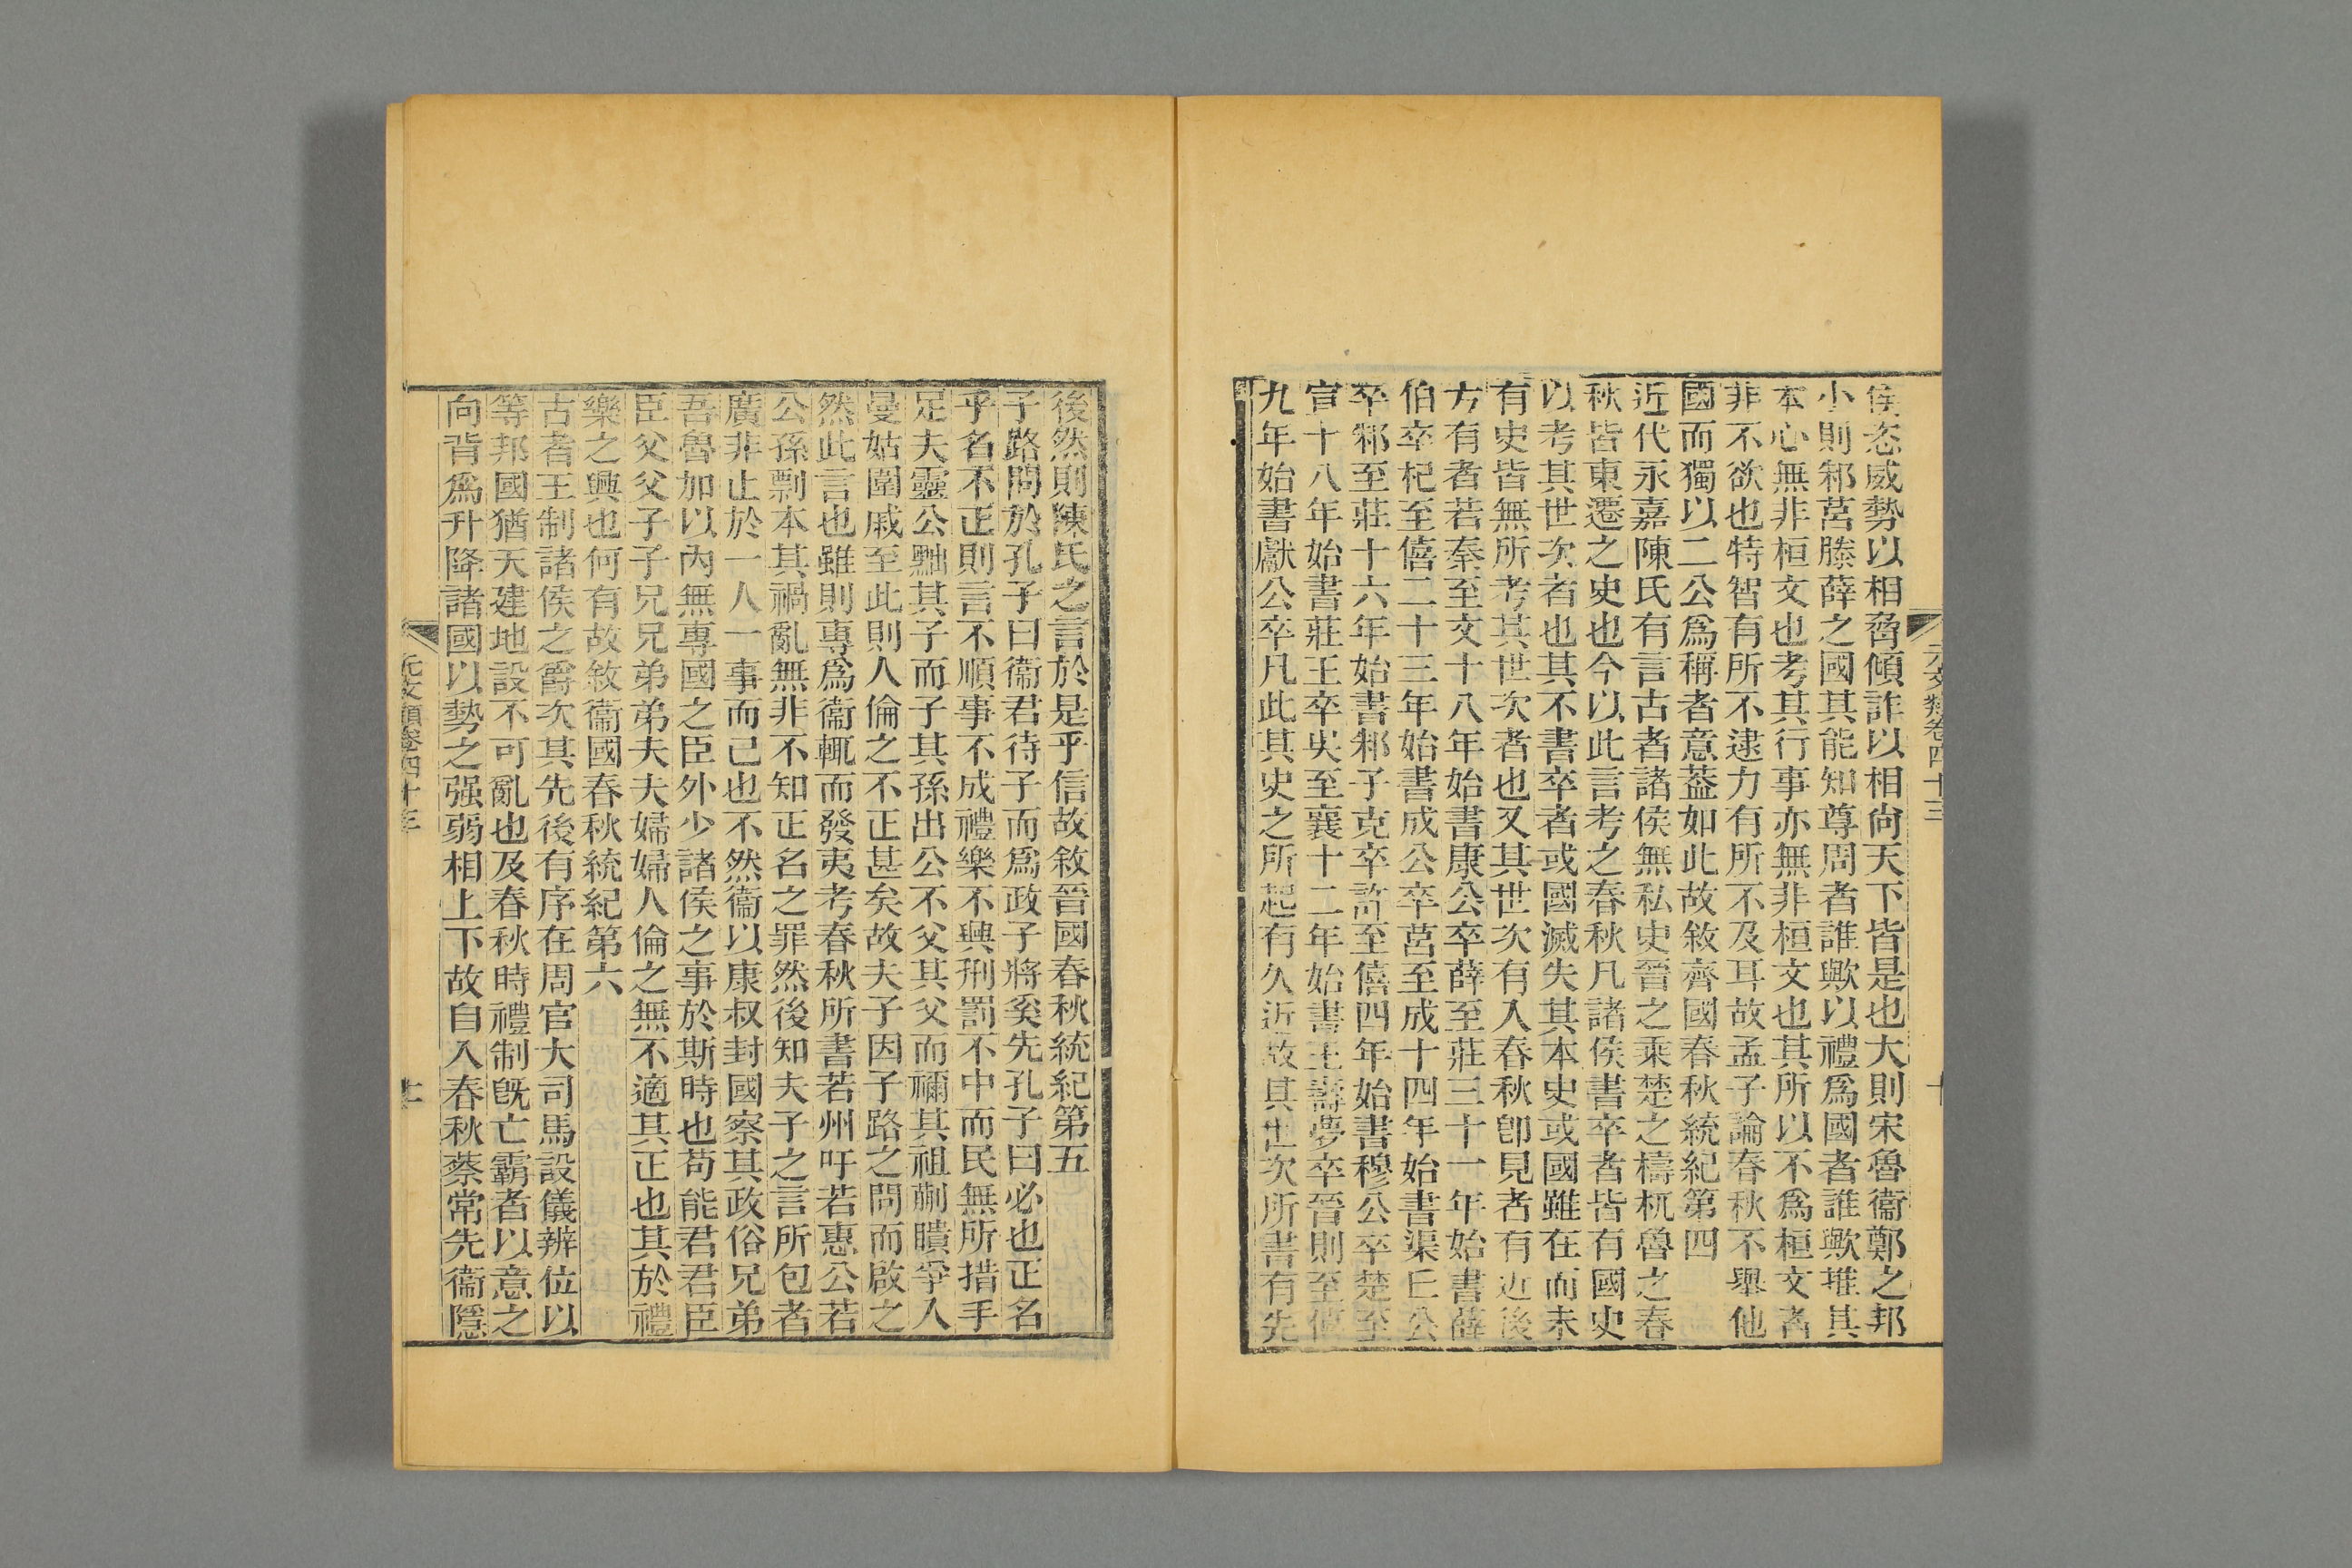 元文類卷四十三
十
侯恣威勢以相脅傾詐以相尙天下皆是也大則宋魯衞鄭之邦
小則邾莒滕薛之國其能知尊周者誰歟以禮爲國者誰歟推其
本心無非桓文也考其行事亦無非桓文也其所以不爲桓文者
非不欲也特智有所不逮力有所不及耳故孟子論春秋不舉他
國而獨以二公爲稱者意葢如此故敘齊國春秋統紀第四
近代永嘉陳氏有言古者諸侯無私史晉之乘楚之檮杌魯之春
秋皆東遷之史也今以此言考之春秋凡諸侯書卒者皆有國史
以考其世次者也其不書卒者或國滅失其本史或國雖在而未
有史皆無所考其世次者也又其世次有入春秋卽見者有近後
方有者若秦至文十八年始書康公卒薛至莊三十一年始書薛
伯卒杞至僖二十三年始書成公卒莒至成十四年始書渠丘公
卒邾至莊十六年始書邾子克卒許至僖四年始書穆公卒楚至
宣十八年始書莊王卒吳至襄十二年始書王壽夢卒晉則至僖
九年始書獻公卒凡此其史之所起有久近故其世次所書有先
後然則陳氏之言於是乎信故敘晉國春秋統紀第五
子路問於孔子曰衞君待子而爲政子將奚先孔子曰必也正名
乎名不正則言不順事不成禮樂不興刑罰不中而民無所措手
足夫靈公黜其子而子其孫出公不父其父而禰其祖蒯聵爭入
曼姑圍戚至此則人倫之不正甚矣故夫子因子路之問而啟之
然此言也雖則專爲衞輒而發夷考春秋所書若州吁若惠公若
公孫剽本其禍亂無非不知正名之罪然後知夫子之言所包者
廣非止於一人一事而已也不然衞以康叔封國察其政俗兄弟
吾魯加以內無專國之臣外少諸侯之事於斯時也苟能君君臣
臣父父子子兄兄弟弟夫夫婦婦人倫之無不適其正也其於禮
樂之興也何有故敘衞國春秋統紀第六
古者王制諸侯之爵次其先後有序在周官大司馬設儀辨位以
等邦國猶天建地設不可亂也及春秋時禮制旣亡霸者以意之
向背爲升降諸國以勢之强弱相上下故自入春秋蔡常先衞隱
元文類卷四十三
十一